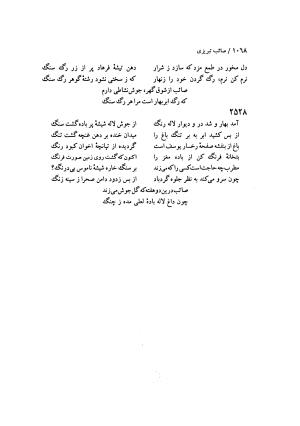 ۱۰۶۸ / صائب تبریزی
دل مخور در طمع مزد که سازد ز شرار دهن تیشهٔ فرهاد پر از زر رگ سنگ
نرم کن نرم، رگ گردن خود را زنهار که ز سختی نشود رشتهٔ گوهر رگ سنگ
صائب از شوق گهر، جوش نشاطی دارم
که رگ ابر بهار است مرا هر رگ سنگ
۲۵۲۸
آمد بهار و شد در و دیوار لاله رنگ از جوش لاله شیشهٔ پر باده گشت سنگ
از بس کشید ابر به بر تنگ باغ را میدان خنده بر دهن غنچه گشت تنگ
باغ از بنفشه صفحهٔ رخسار یوسف است گردیده از تپانچهٔ اخوان کبود رنگ
بتخانهٔ فرنگ کن از باده مغز را اکنون که گشت روی زمین صورت فرنگ
مطرب چه حاجت است کسی را که می‌زند بر سنگ خاره شیشهٔ ناموس بی‌درنگ؟
چون سرو می‌کند به نظر جلوه گردباد از بس زدود دامن صحرا ز سینه زنگ
صائب درین دو هفته که گل جوش می‌زند
چون داغ لاله بادهٔ لعلی مده ز چنگ